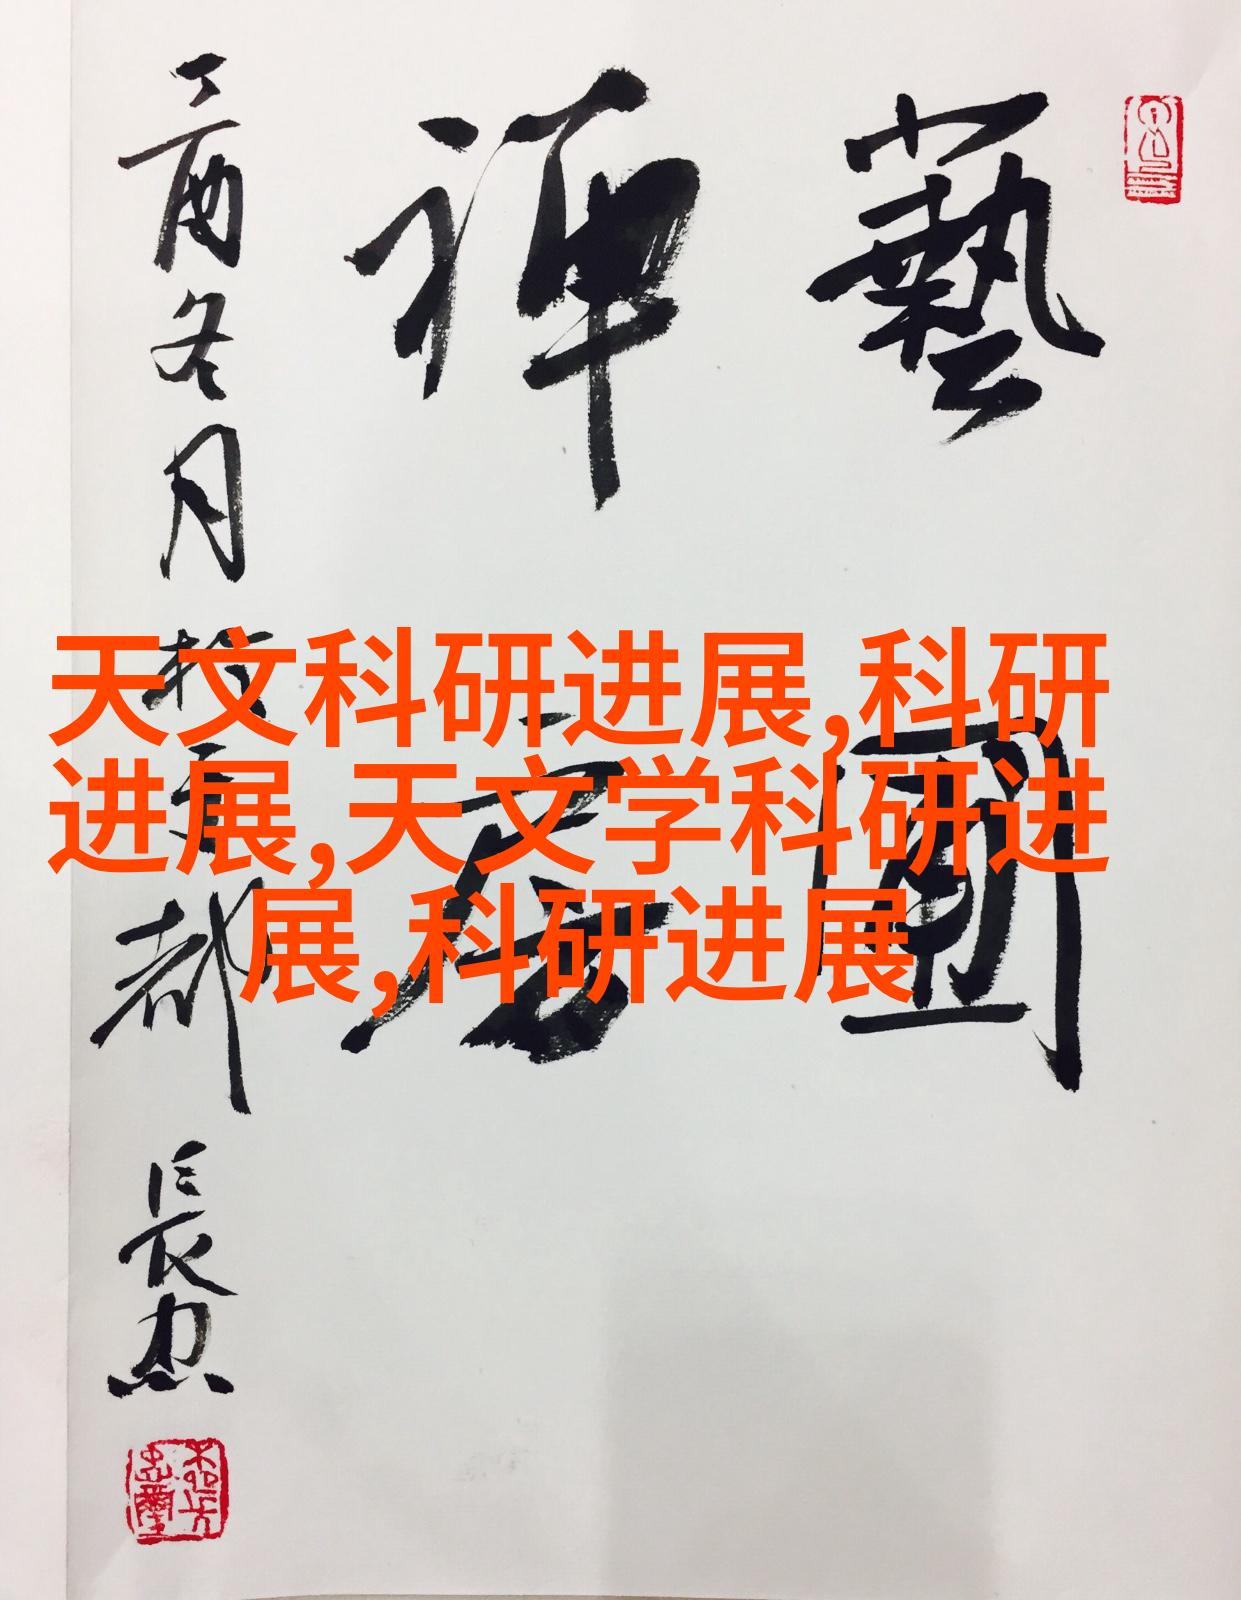 天文科研进展,科研
进展,天文学科研进
展,科研进展
藝園
禪
丁酉冬月於京都